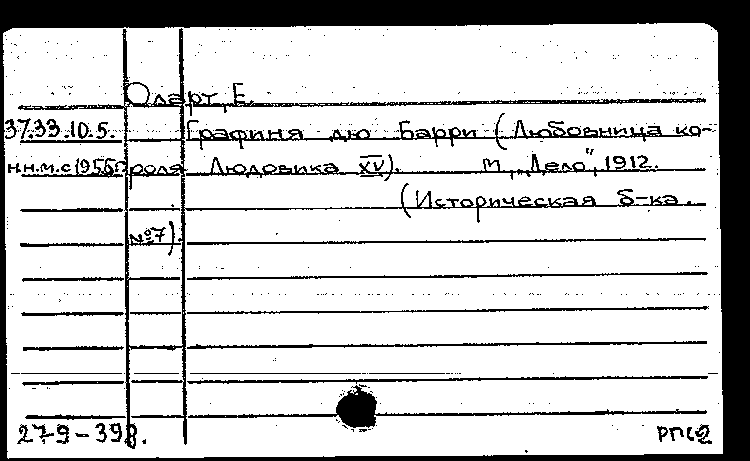 Оларт, Е.
37.33.10.5. Графиня дю Барри (Любовница ко-
н.н.м.с 1955г. роля Людовика XV). М, „Дело", 1912.
(Историческая б-ка.
№7).
27-9-398.